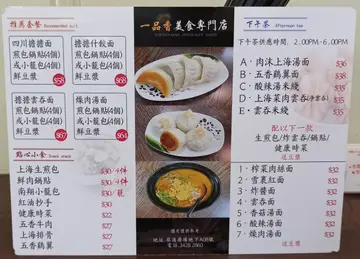 推薦套餐 Recommended set
四川擔擔面
煎包鍋貼(4個)
或小籠包(4個)
鮮豆漿 $58
擔擔什飯面
煎包鍋貼(4個)
或小籠包(4個)
鮮豆漿 $68
擔擔雲吞面
煎包鍋貼(4個)
或小籠包(4個)
鮮豆漿 $67
燒肉湯面
煎包鍋貼(4個)
或小籠包(4個)
鮮豆漿 $64
點心小食 Snack
上海生煎包 $30/4件
鮮肉鍋貼 $30/4件
南翔小籠包 $30/籠
紅油抄手 $30
健康時菜 $22
五香牛肉 $27
上海排骨 $27
五香鷄翼 $27
一品香美食專門店
圖片只供參考
電話:3428 2860
下午茶 Afternoon tea
下午茶供應時間: 2.00PM-6.00PM
A・肉沫上海湯面 $36
B・五香鷄翼面 $35
C・酸辣湯米綫 $35
D・上海菜肉雲吞(净雲吞) $35
E・雪菜米綫 $35
配以下一款
生煎包/炸雲吞/鍋貼/
健康時菜
送豆漿
1・榨菜肉絲面 $32
2・雪裏紅面 $32
3・炸醬面 $32
4・雲吞面 $32
5・香菇湯面 $32
6・酸辣湯面 $32
7・燒肉湯面 $32
送豆漿